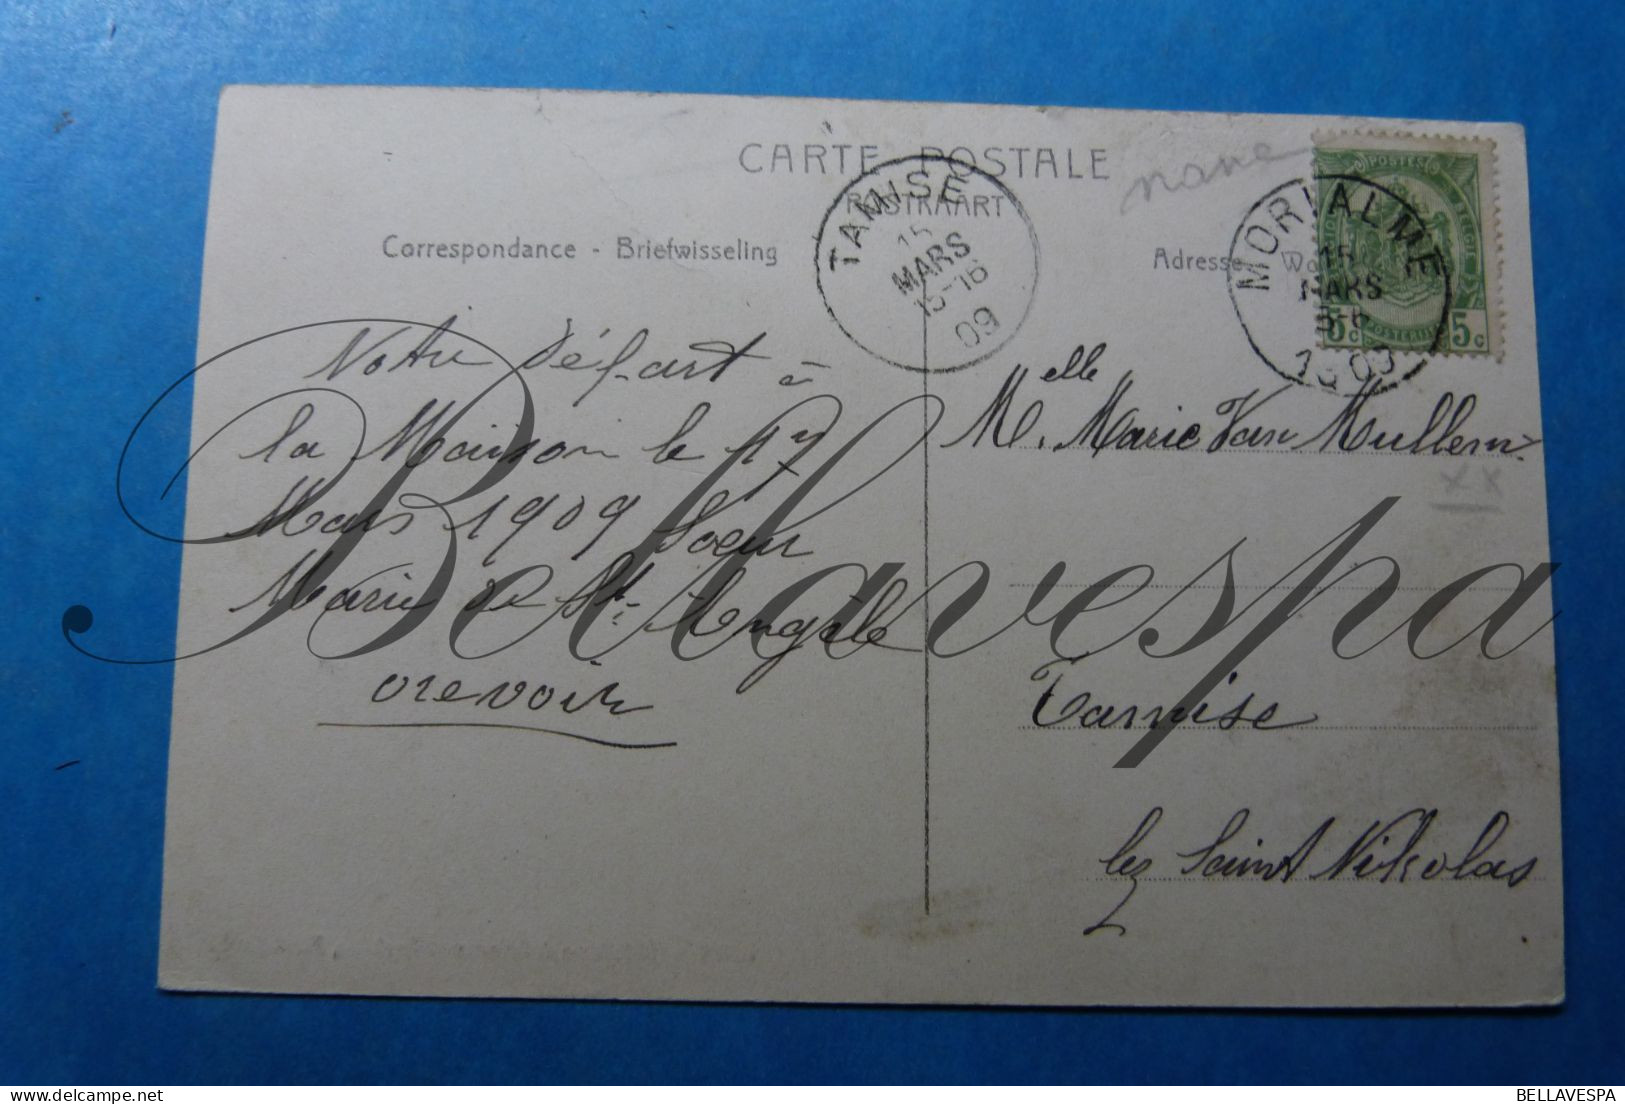 CARTE POSTALE
POSTKAART
Correspondance - Briefwisseling
Adresse
TAMISE
15
MARS
15-16
09
MORIALME
15
MARS
1909
POSTES
BELGIQUE
5c 5c
POSTERIJEN
rare
Notre départ à
la Maison le 17
Mars 1909 Soeur
Marie de Ste Angèle
orevoir
Melle. Marie Van Mullem
xx
Tamise
lez Saint Nikolas
Bellavespa
BELLAVESPA